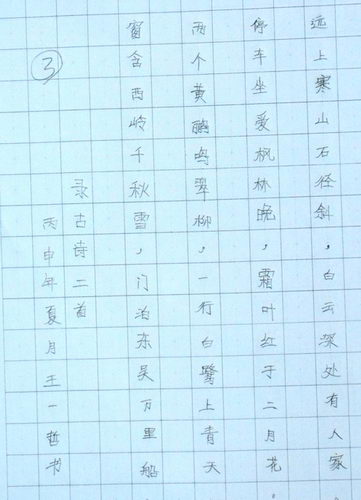 远上寒山石径斜，白云深处有人家
停车坐爱枫林晚，霜叶红于二月花。
两个黄鹂鸣翠柳，一行白鹭上青天
窗含西岭千秋雪，门泊东吴万里船
录古诗二首
丙申年夏月王一哲书
3